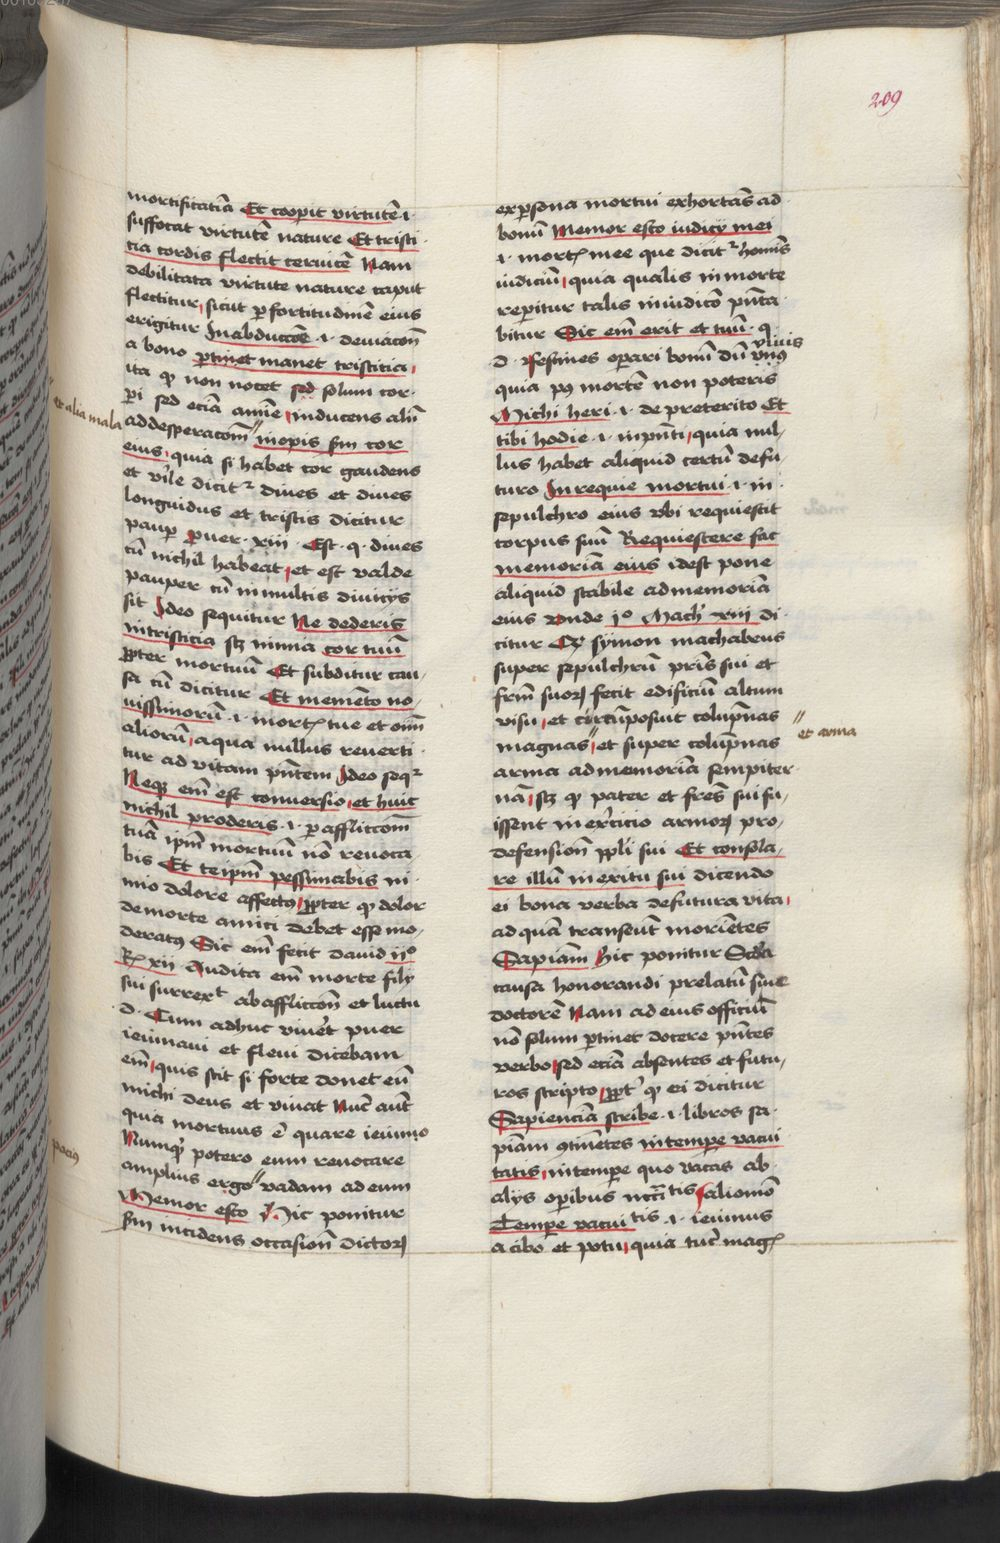 209
mortificatiā Et cooperit virtutē ·i·
suffocat virtutē nature Et tristi
tia cordis flectit cervicē Nam
debilitata virtute nature caput
flectitur, sicut p fortitudinē eius
erigitur In abduccōe ·i· deviacōn
a bono p̄tinet manet tristicia,
ita qɂ non nocet sed solum cor
pi sed eciā anīe, inducens aliī
et alia mala
ad desperacōem inopis s̄m cor
eius, quia si habet cor gaudens
et vīle dicitr dives et dives
longuidus et tristis dicitur
paup Prover · xiii · Est · q · dives
cū nichil habeat, et est valde
pauper cū in multis divicijs
sit Ideo sequitur Ne dederis
in tristicia sɜ nimia cor tuū
ꝓpter mortuū Et subditur cau
sa cū dicitur Et memēto no
vissimorū ·i· mortɜ tue et oīm
aliorū, a qua nullus reverti
tur ad vitam pn̄tem Ideo seqr
Neqɜ em̄ est conversio, et huic
nichil proderis ·i· p affliccōem
tuā ip̄m mortuū nō revoca
bis Et teip̄m pessimabis ni
mio dolore affectꝰ, ꝓpter qɂ dolor
de morte amici debet esse mo
deratꝰ Sic em̄ fecit david ijº
Rº xij Audita em̄ morte filij
sui surrexᵗ ab affliccōn et luctu
d · Cum adhuc viveꝛet puer
ieiunavi et flevi dicebam
em̄, quis scit si forte donet eū
michi deus et vivat Nūc aut̄
quia mortuus ē quare ieiuno
Numqɂ potero eum revocare
pociꝰ
amplius ergo vadam ad eum
Memor esto Hic ponitur
s̄m incidens occasiōn dictorɜ
ex psona mortui exhortās ad
bonū Memor esto iudicij mei
·i· mortɜ mee que dicitr hoīnis
iudiciū, quia qualis in morte
repitur talis in iudicō pn̄ta
bitur Sic em̄ erit et tuū · q
d · festines operari bonū dū vivis
quia pꝰ mortē non poteris
Michi heri ·i· de preterito Et
tibi hodie ·i· in pn̄ti, quia nul
lus habet aliquid certū de fu
turo In requie mortui ·i· in
sepulchro eius vbi requiescit
corpus suū Requiescere fac
memoriā eius idest pone
aliquid stabile ad memoriā
eius Vnde jº Mach xiii di
citur Et symon machabeus
super sepulchrū pr̄is sui et
fr̄m suorɜ fecit edificiū altum
visu, et circūposuit colūpnas
magnas, et super colūpnas
et arma
arma ad memoriā sempiter
nā, sɜ qɂ pater et fr̄es sui fu
issent in ex̄ercicio armorɜ pro
defensiōn ppli sui Et consola
re illū in exitu sui dicendo
ei bona verba de futura vita,
ad quā transeūt moriētes
Sapiam Hic ponitur Scd̄a
causa honorandi prelatū sive
doctorē Nam ad eius officiū
nō solum p̄tinet docere pn̄tes
verbo, sed eciā absentes et futu
ros scripto, ꝓpt qɂ ei dicitur
Sapienciam scribe ·i· libros sa
piam ɔtinētes in tempe vacui
tatis, in tempe quo vacas ab
alijs opibus nccātis, al iomō
Tempe vacuitatis ·i· ieiunus
a cibo et potu, quia tūc magɜ